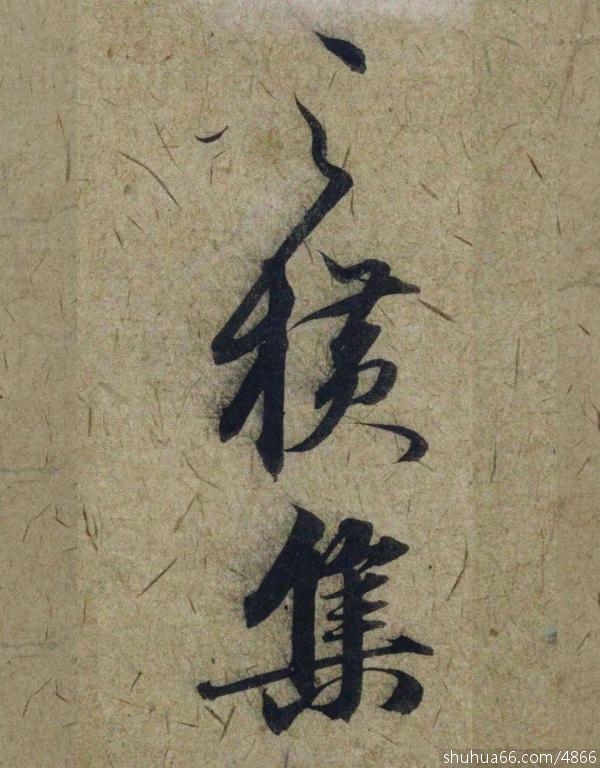 之横集
shuhua66.com/4866